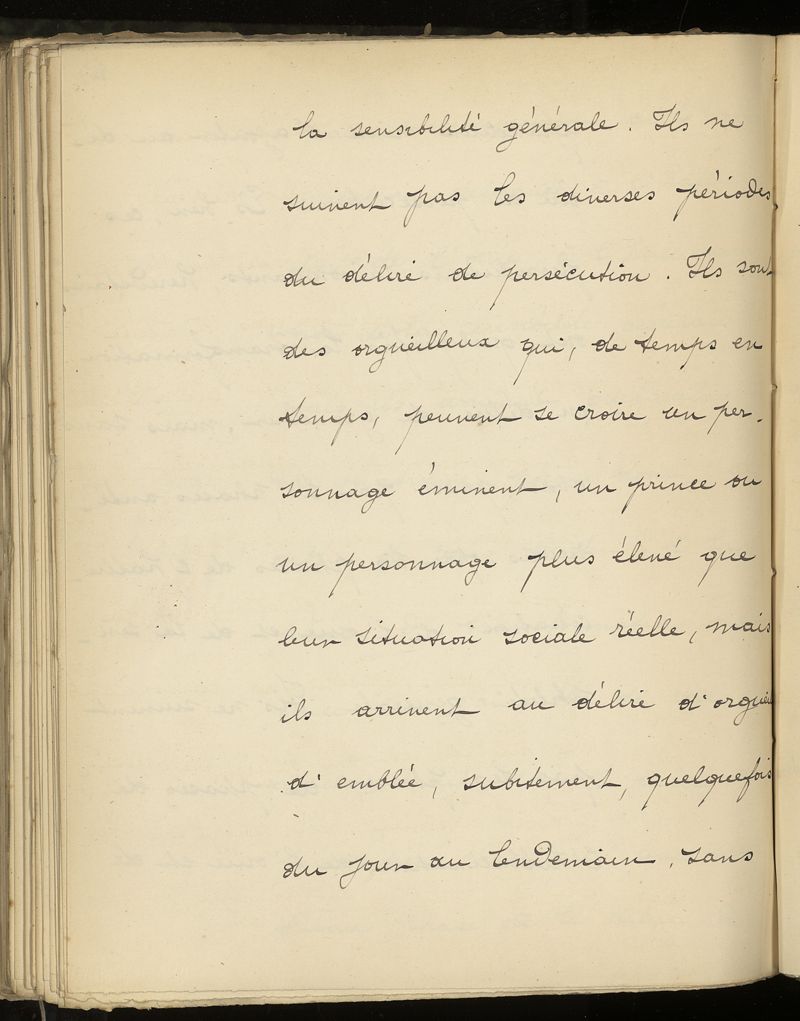 la sensibilité générale. Ils ne
suivent pas les diverses périodes
du délire de persécution. Ils sont
des orgueilleux qui, de temps en
temps, peuvent se croire un per-
sonnage éminent, un prince ou
un personnage plus élevé que
leur situation sociale réelle, mais
ils arrivent au délire d'orgueil
d'emblée, subitement, quelquefois
du jour au lendemain, sans